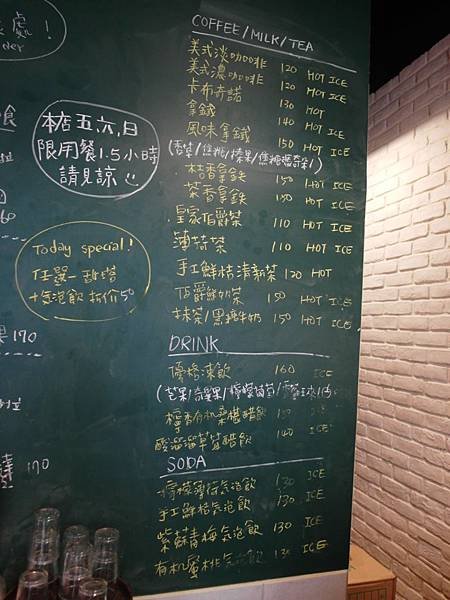 處！
COFFEE/MILK/TEA
美式淡咖啡 120 HOT ICE
美式濃咖啡 120 HOT ICE
卡布奇諾 130 HOT
拿鐵 140 HOT ICE
風味拿鐵 150 HOT ICE
(香草/焦糖/榛果/焦糖瑪奇朵)
桔香拿鉄 150 HOT ICE
茶香拿鉄 150 HOT ICE
皇家伯爵茶 110 HOT ICE
薄荷茶 110 HOT ICE
手工鮮桔清新茶 120 HOT
伯爵鮮奶茶 150 HOT ICE
抹茶/黑糖牛奶 150 HOT ICE
DRINK
優格凍飲 160 ICE
(芒果/奇異果/檸檬
檸香有机桑椹醋飲 ICE
酸溜溜草莓醋飲 140 ICE
SODA
檸檬薄荷気泡飲 130 ICE
手工鮮桔気泡飲 130 ICE
紫蘇青梅気泡飲 130 ICE
有机蜜桃気泡飲 130 ICE
本店五六日
限用餐1.5小時
請見諒
Today special!
任選一甜塔
+気泡飲 折价50
60
170
170